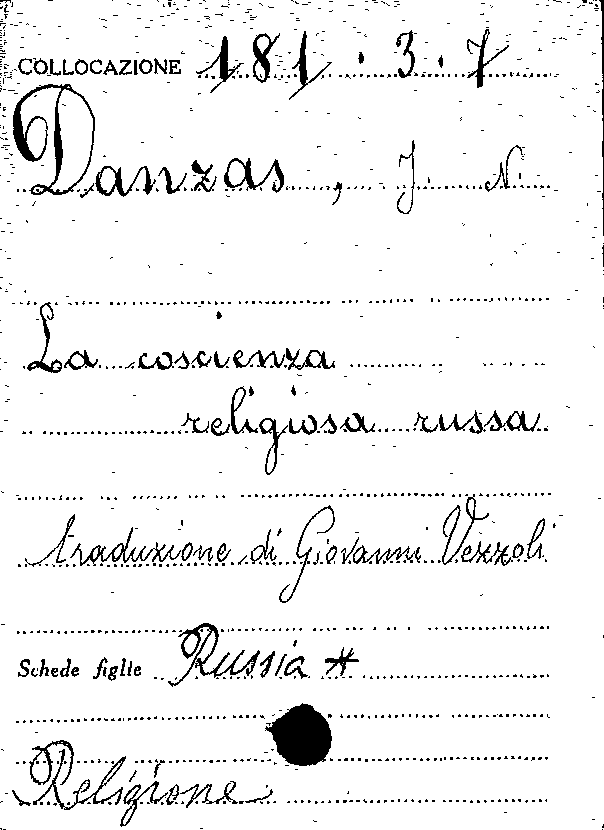 COLLOCAZIONE 181.3.7
Danzas, J. N.
La coscienza
religiosa russa
traduzione di Giovanni Vezzoli
Schede figlie Russia *
Religione